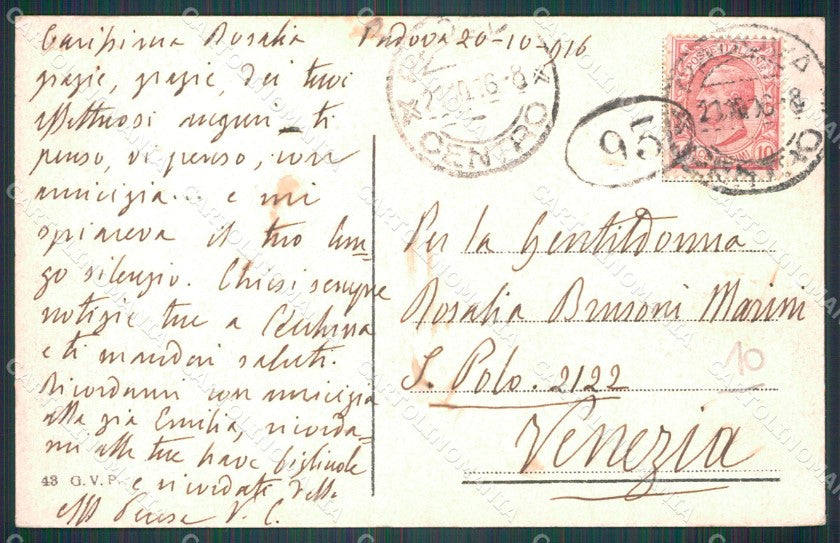 Carissima Rosalia Padova 20-10-916
grazie, grazie, dei tuoi
affettuosi auguri ti
penso, vi penso, con
amicizia... e mi
spiaceva il tuo lun=
go silenzio. Chiesi sempre
notizie tue a
e ti mandai saluti.
Ricordami con amicizia
alla zia Emilia, ricorda=
mi alle tue care figliuole
e ricordati della
aff V. C.
43 G. V. P.
CENTRO
20.10.16-8
95
10
Per la Gentildonna
Rosalia Brusoni Marini
S. Polo. 2122
Venezia
10
CARTOLINOMANIA